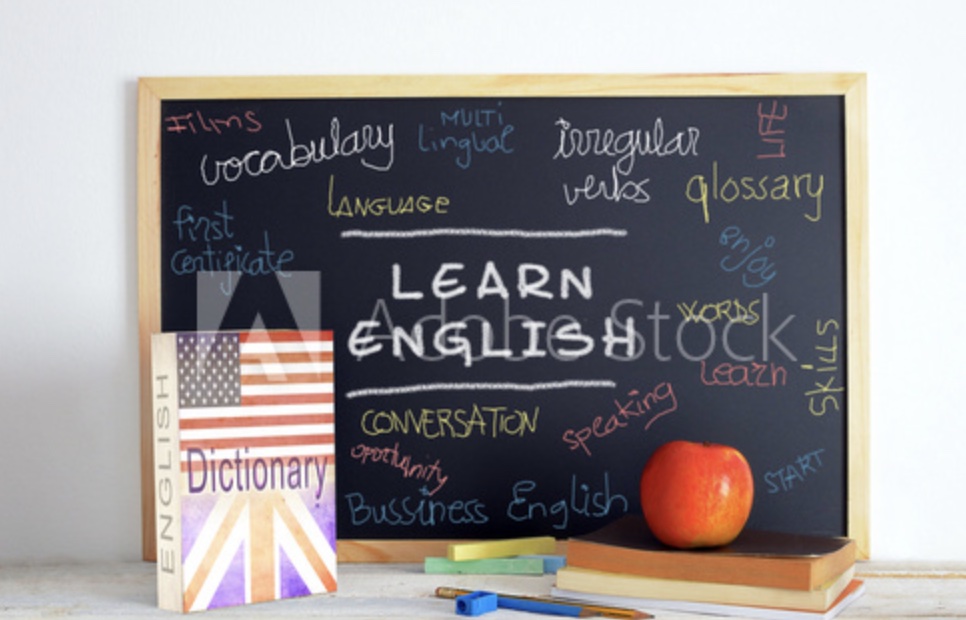 Films
vocabulary
MULTi
lingual
irregular
verbs
LIFE
LANGUAGe
glossary
first
certificate
enjoy
LEARN
ENGLISH
WORDS
Adobe Stock
learn
SKILLS
ENGLISH
Dictionary
CONVERSATION
speaking
oportunity
START
Bussiness English